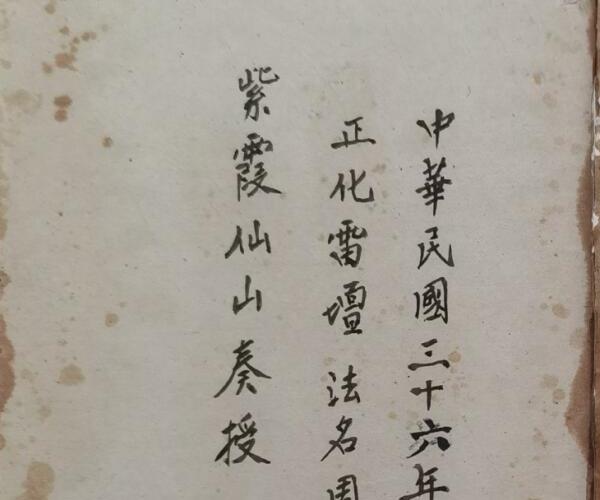 中華民國三十六年
正化雷壇法名周
紫霞仙山奏授